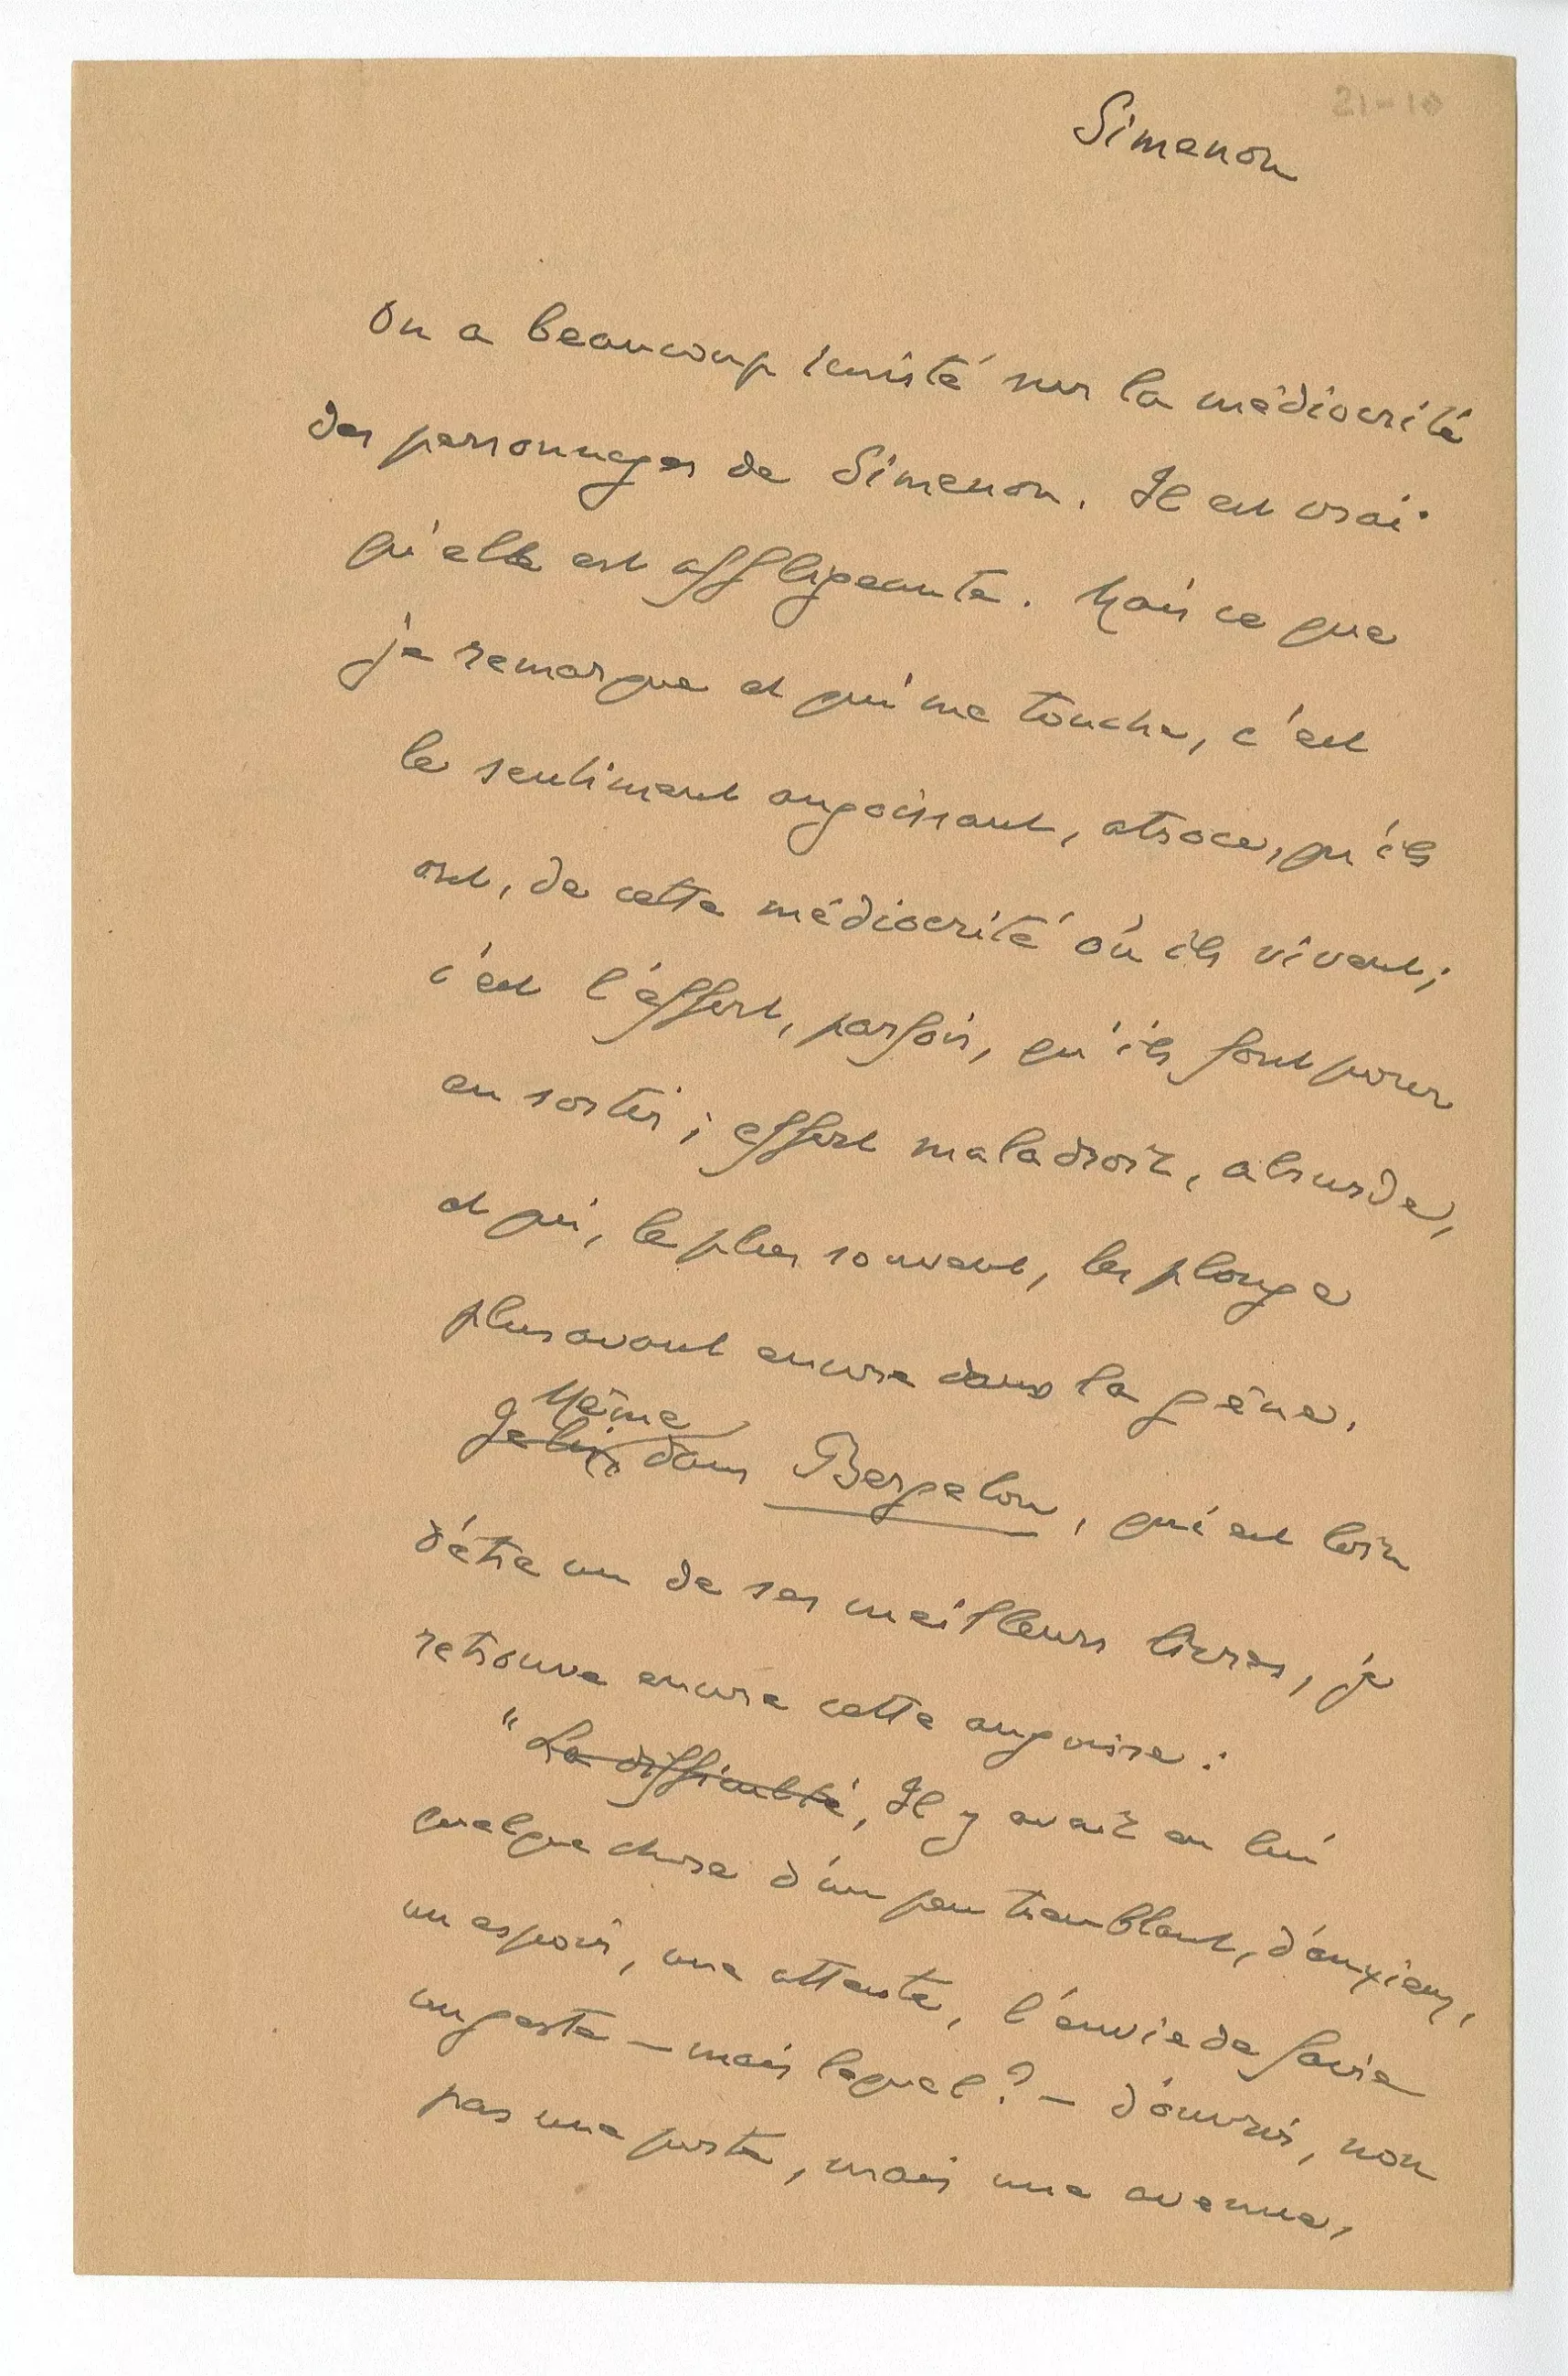 21-10
Simenon
On a beaucoup insisté sur la médiocrité
des personnages de Simenon. Il est vrai
qu'elle est affligeante. Mais ce que
je remarque et qui me touche, c'est
le sentiment angoissant, atroce, qu'ils
ont, de cette médiocrité où ils vivent ;
c'est l'effort, parfois, qu'ils font pour
en sortir ; effort maladroit, absurde,
et qui, le plus souvent, les plonge
plus avant encore dans la gêne.
Même
Je lis dans Bergelon, qui est loin
d'être un de ses meilleurs livres, je
retrouve encore cette angoisse :
"La difficulté, Il y avait en lui
quelque chose d'un peu tremblant, d'anxieux,
un espoir, une attente, l'envie de faire
un geste — mais lequel ? — d'ouvrir, non
pas une porte, mais une avenue,